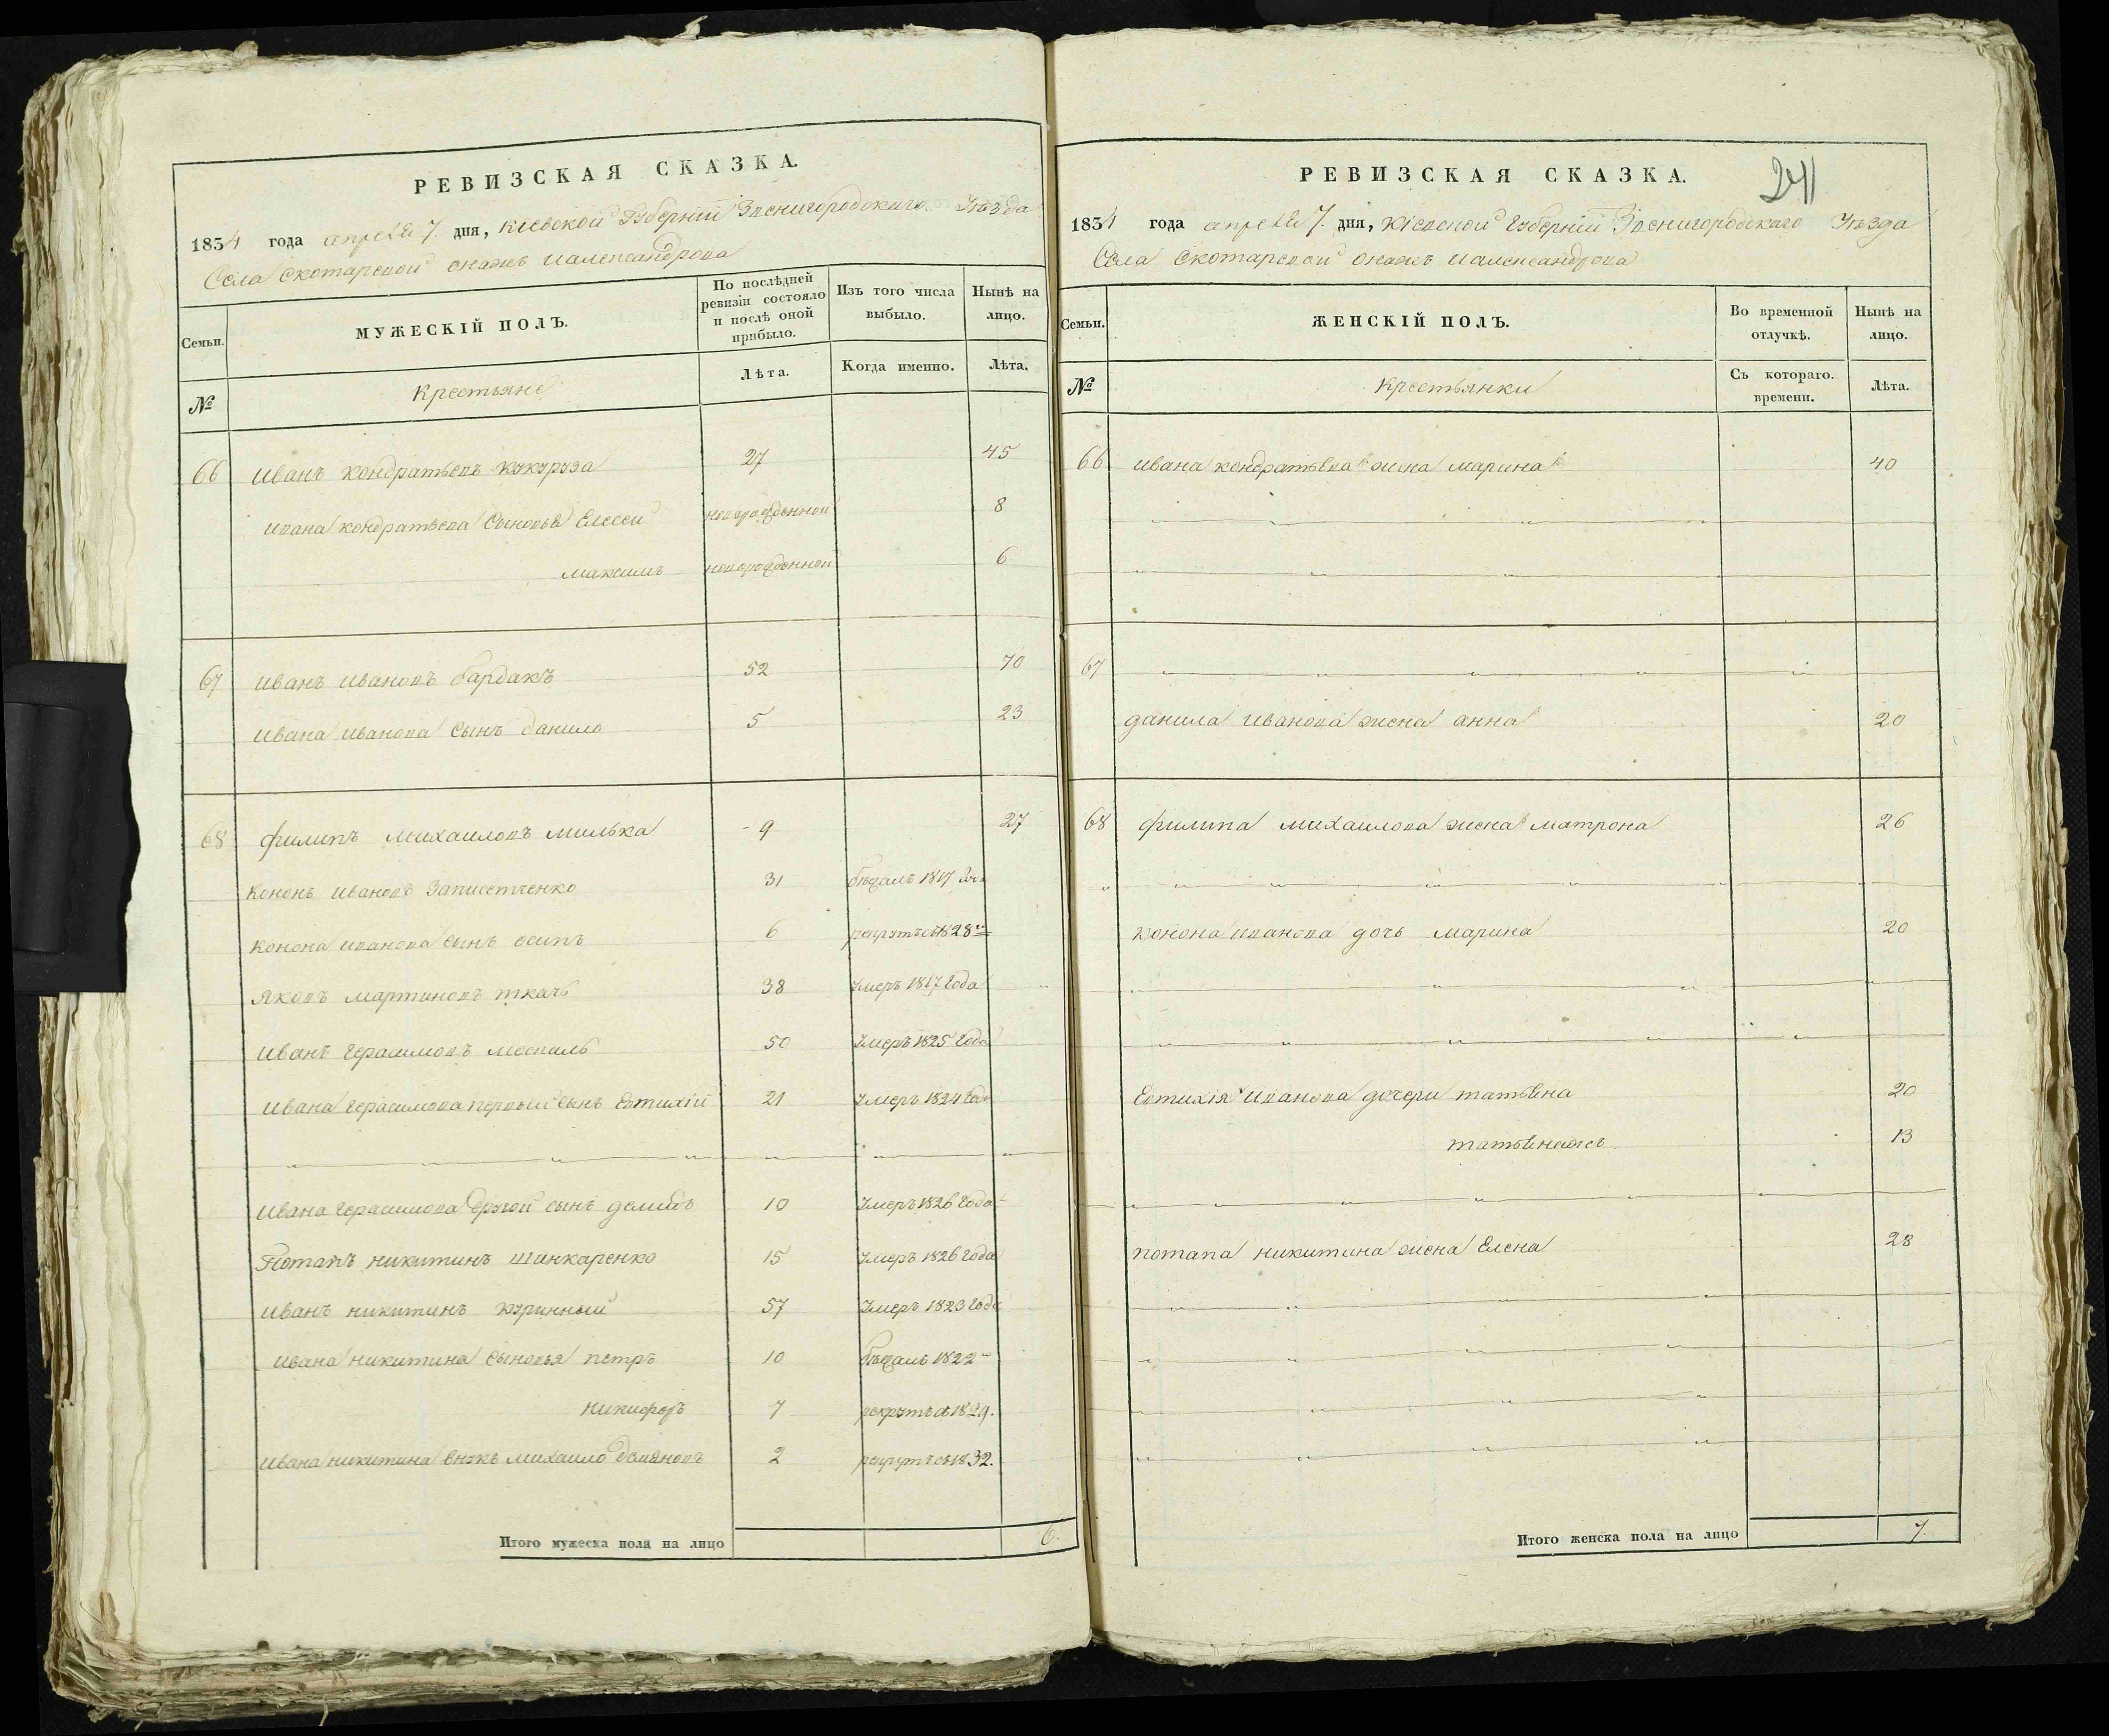 РЕВИЗСКАЯ СКАЗКА.
1834 года апреля 7. дня, Кіевской Губерніи Звенигородскаго Уѣзда
Села Скотаревой онажъ иалександрова
Семьи. МУЖЕСКІЙ ПОЛЪ. По послѣдней ревизіи состояло и послѣ оной прибыло. Изъ того числа выбыло. Нынѣ на лицо.
№ Крестьяне Лѣта. Когда именно. Лѣта.
66 Иванъ Кондратьевъ кукуруза 27 45
Ивана кондратьева Сыновья Елесеи новорожденной 8
максимъ новорожденной 6
67 Иванъ Ивановъ бардакъ 52 70
Ивана Иванова Сынъ данило 5 23
68 филипъ михаиловъ милька 9 27
Кононъ Ивановъ 31 бѣжалъ 1817 Года
Конона иванова Сынъ осипъ 6 рекрутъ съ 1828
Яковъ мартиновъ ткачъ 38 Умеръ 1817 Года
Иванъ Герасимовъ москаль 50 Умеръ 1825 Года
Ивана Герасимова первый Сынъ Евтихій 21 Умеръ 1824 Года
Ивана Герасимова другой Сынъ демидъ 10 Умеръ 1826 Года
Потапъ никитинъ шинкаренко 15 Умеръ 1826 Года
Иванъ никитинъ 57 Умеръ 1823 Года
Ивана никитина Сыновья петръ 10 бѣжалъ 1822
Никифоръ 7 рекрутъ съ 1829.
Ивана никитина Внукъ михаило демяновъ 2 рекрутъ съ 1832.
Итого мужеска пола на лицо 6.
РЕВИЗСКАЯ СКАЗКА. 241
1834 года апреля 7. дня, Кіевской Губерніи Звенигородскаго Уѣзда
Села Скотаревой онажъ иалександрова
Семьи. ЖЕНСКІЙ ПОЛЪ. Во временной отлучкѣ. Нынѣ на лицо.
№ Крестьянки Съ котораго. времени. Лѣта.
66 Ивана кондратьева жена марина 40
67
данила Иванова жена анна 20
68 филипа михаилова жена матрона 26
Конона иванова дочь марина 20
Евтихія Иванова дочери татьяна 20
татьянажъ 13
потапа никитина жена Елена 28
Итого женска пола на лицо 7.